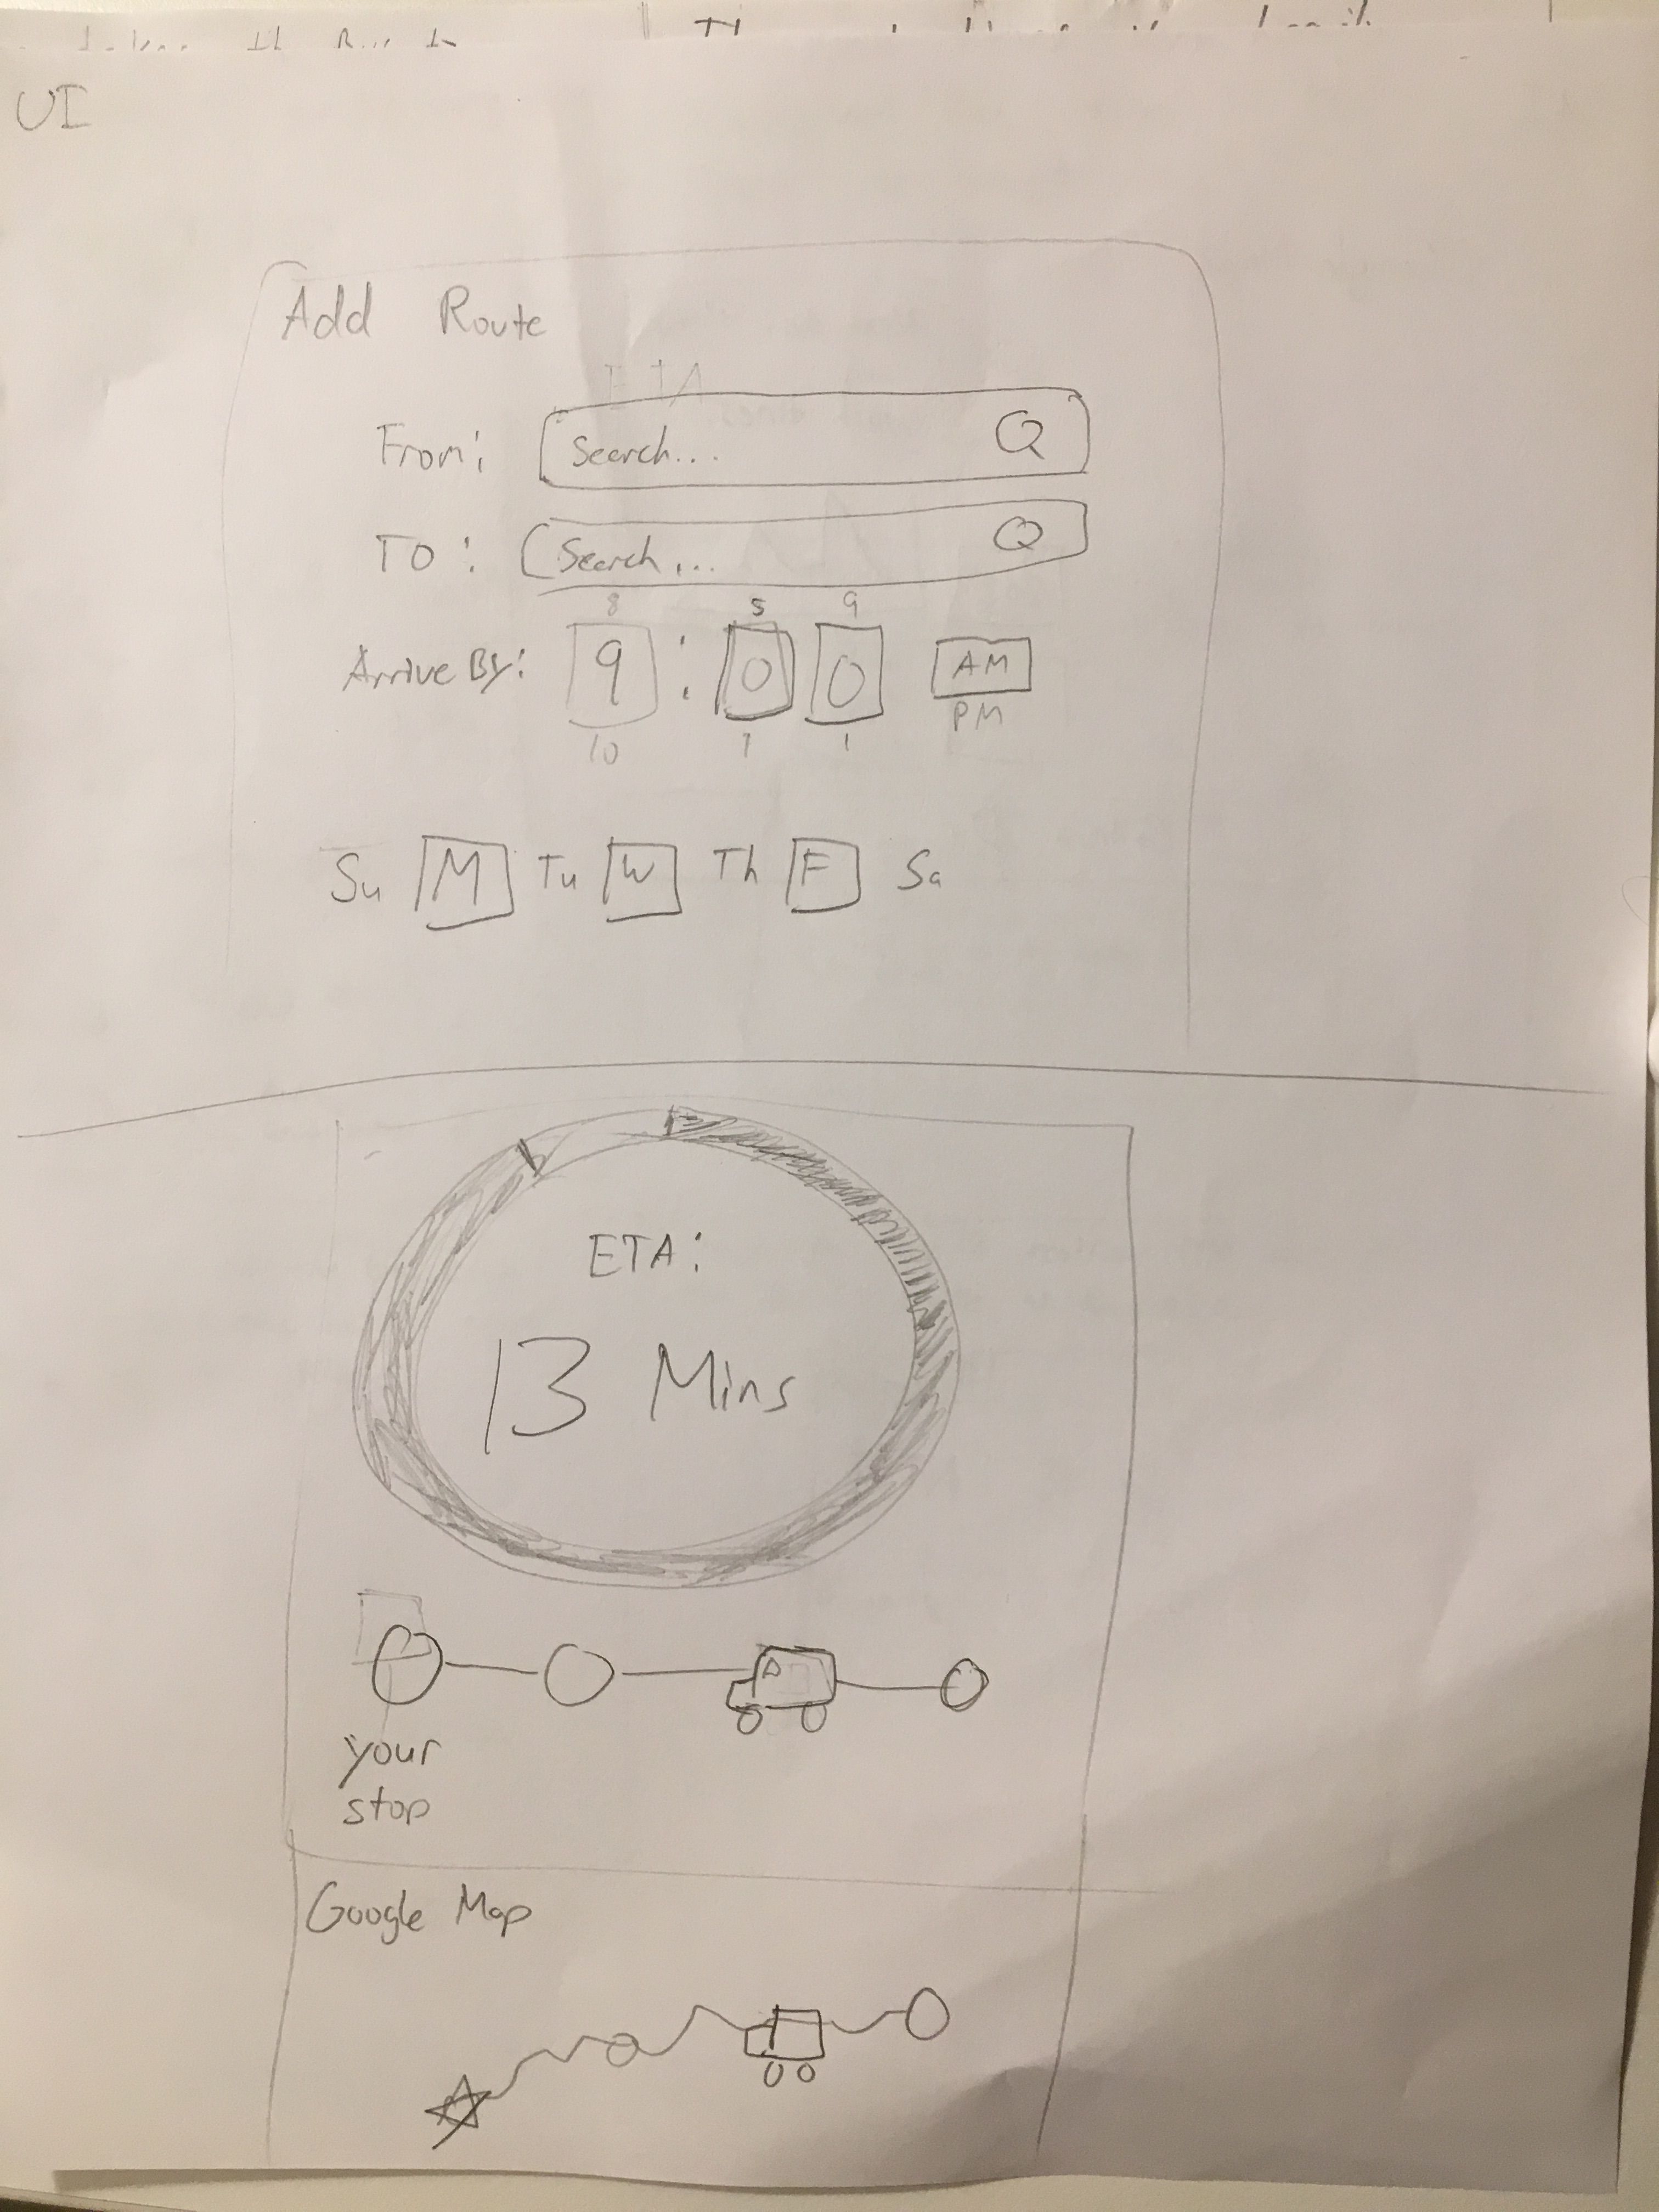 UI
Add Route
ETA
From: Search...
TO: Search...
8 5 9
Arrive By: 9 : 0 0 AM
10 1 1 PM
Su M Tu W Th F Sa
ETA:
13 Mins
your
stop
Google Map